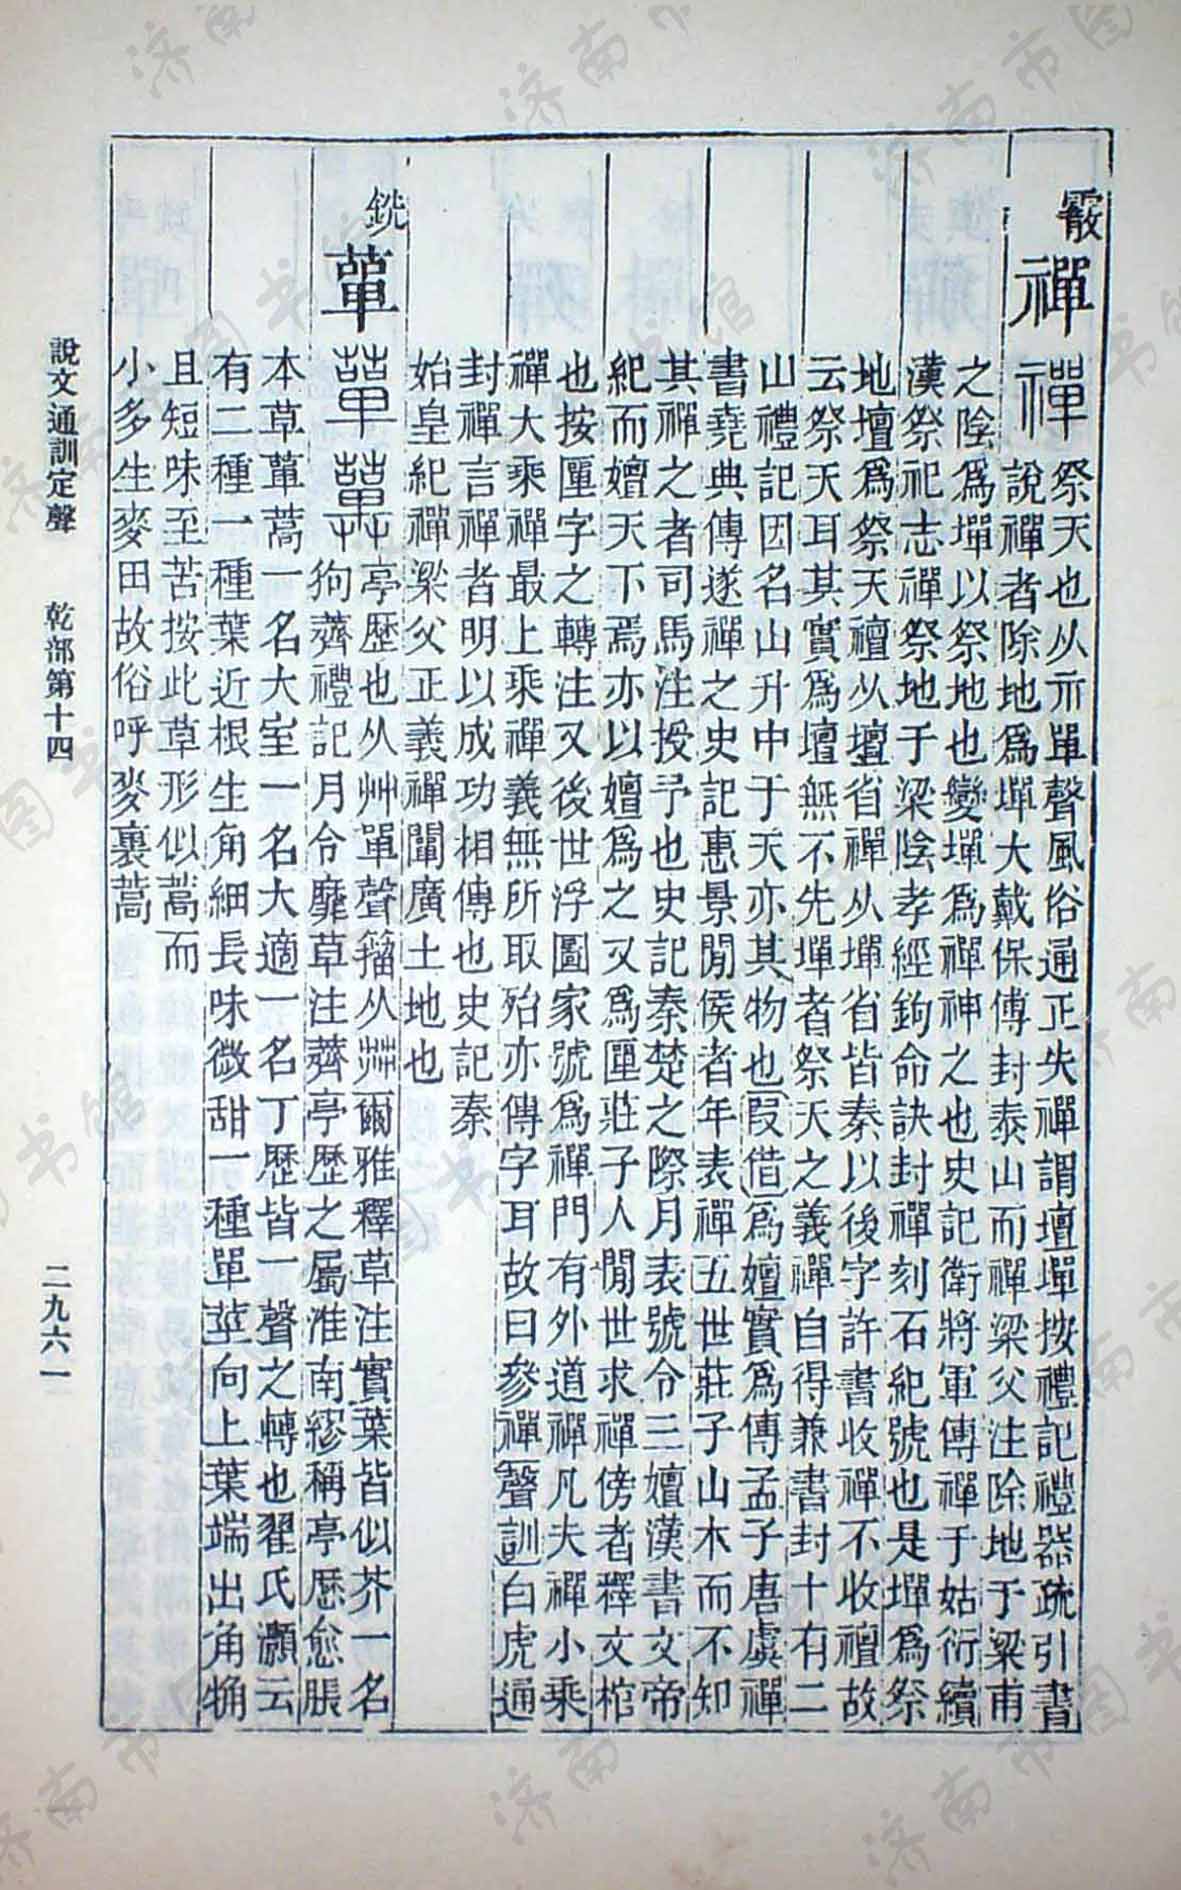 霰
禪
禪 祭天也从示單聲風俗通正失禪謂壇墠按禮記禮器疏引書
說禪者除地爲墠大戴保傅封泰山而禪梁父注除地于梁甫
之陰爲墠以祭地也變墠爲禪神之也史記衛將軍傳禪于姑衍續
漢祭祀志禪祭地于梁陰孝經鉤命訣封禪刻石紀號也是墠爲祭
地壇爲祭天襢从壇省禪从墠省皆秦以後字許書收禪不收襢故
云祭天耳其實爲壇無不先墠者祭天之義禪自得兼書封十有二
山禮記因名山升中于天亦其物也叚借爲嬗實爲傳孟子唐虞禪
書堯典傳遂禪之史記惠景閒侯者年表禪五世莊子山木而不知
其禪之者司馬注授予也史記秦楚之際月表號令三嬗漢書文帝
紀而嬗天下焉亦以嬗爲之又爲匰莊子人閒世求禪傍者釋文棺
也按匰字之轉注又後世浮圖家號爲禪門有外道禪凡夫禪小乘
禪大乘禪最上乘禪義無所取殆亦傳字耳故曰參禪聲訓白虎通
封禪言禪者明以成功相傳也史記秦
始皇紀禪梁父正義禪闡廣土地也
銑
蕇
蕇 亭歷也从艸單聲籀从茻爾雅釋草注實葉皆似芥一名
狗薺禮記月令靡草注薺亭歷之屬淮南繆稱亭歷愈脹
本草蕇蒿一名大室一名大適一名丁歷皆一聲之轉也翟氏灝云
有二種一種葉近根生角細長味微甜一種單莖向上葉端出角觕
且短味至苦按此草形似蒿而
小多生麥田故俗呼麥裏蒿
說文通訓定聲 乾部第十四 二九六一